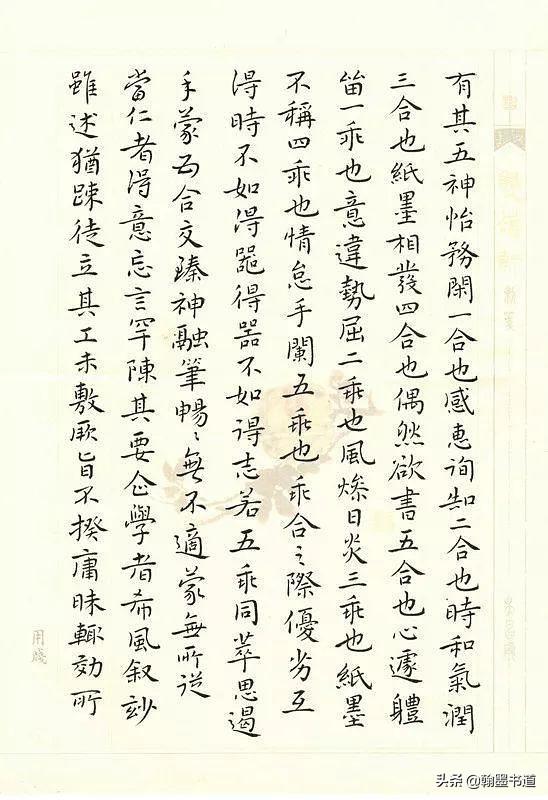 有其五神怡務閑一合也感惠徇知二合也時和氣潤
三合也紙墨相發四合也偶然欲書五合也心遽體
留一乖也意違勢屈二乖也風燥日炎三乖也紙墨
不稱四乖也情怠手闌五乖也乖合之際優劣互
得時不如得器得器不如得志若五乖同萃思遏
手蒙五合交臻神融筆暢暢無不適蒙無所從
當仁者得意忘言罕陳其要企學者希風叙妙
雖述猶疎徒立其工未敷厥旨不揆庸昧輙効所
用牋
头条 @翰墨书道